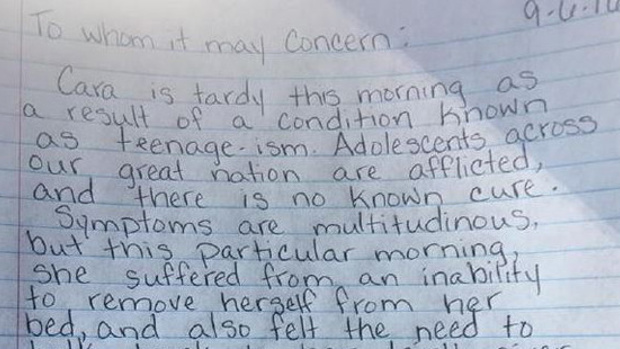 9-6-16
To whom it may concern:
Cara is tardy this morning as
a result of a condition known
as teenage-ism. Adolescents across
our great nation are afflicted,
and there is no known cure.
Symptoms are multitudinous,
but this particular morning,
she suffered from an inability
to remove herself from her
bed, and also felt the need to